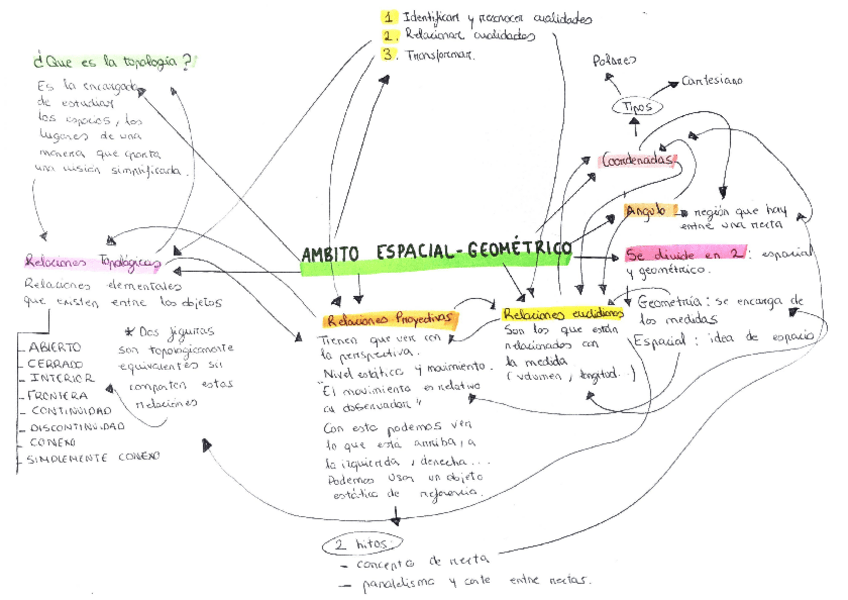 1 Identificar y reconocer cualidades
2. Relacionar cualidades
3. Transformar.
¿Que es la topología?
Es la encargada
de estudiar
los espacios, los
lugares de una
manera que aporta
una visión simplificada.
Polares
Cartesiano
Tipos
Coordenadas
Angulo → región que hay
entre una recta
AMBITO ESPACIAL-GEOMÉTRICO
Se divide en 2: espacial
y geométrico.
Geometría: se encarga de
las medidas
Espacial: idea de espacio
Relaciones Topológicas
Relaciones elementales
que existen entre los objetos
- ABIERTO
- CERRADO
- INTERIOR
- FRONTERA
- CONTINUIDAD
- DISCONTINUIDAD
- CONEXO
- SIMPLEMENTE CONEXO
* Dos figuras
son topologicamente
equivalentes si
comparten estas
relaciones
Relaciones Proyectivas
Tienen que ver con
la perspectiva.
Nivel estático y movimiento.
"El movimiento es relativo
al observador"
Con esto podemos ver
lo que está arriba, a
la izquierda, derecha...
Podemos usar un objeto
estático de referencia.
Relaciones euclidianas
Son los que están
relacionados con
la medida
(volumen, longitud..)
2 hitos:
- concepto de recta
- paralelismo y corte entre rectas.